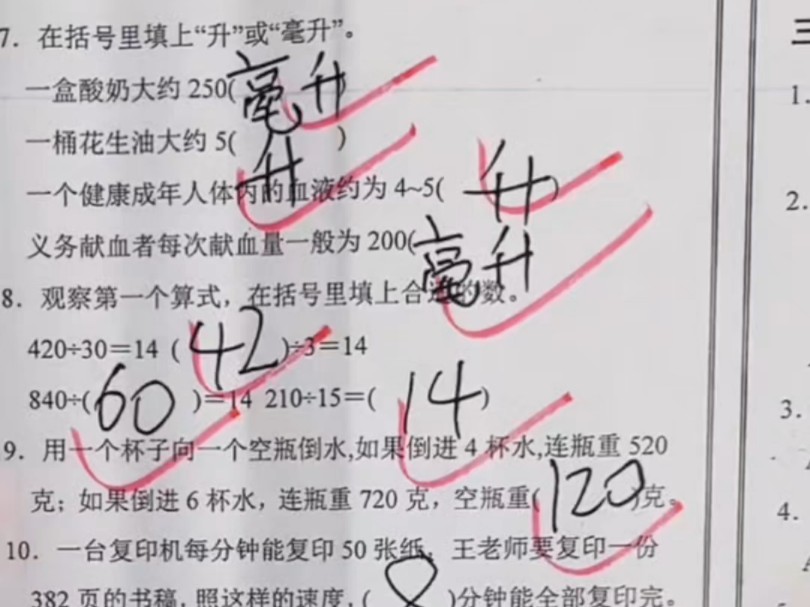 7. 在括号里填上“升”或“毫升”。
三
一盒酸奶大约 250(毫升)
1.
一桶花生油大约 5(升)
一个健康成年人体内的血液约为 4~5(升)
2.
义务献血者每次献血量一般为 200(毫升
8. 观察第一个算式，在括号里填上合适的数。
420÷30=14 (42)÷3=14
840÷(60)=14 210÷15=(14)
3.
9. 用一个杯子向一个空瓶倒水,如果倒进 4 杯水,连瓶重 520
克；如果倒进 6 杯水，连瓶重 720 克，空瓶重(120)克。
4.
10. 一台复印机每分钟能复印 50 张纸，王老师要复印一份
382 页的书稿，照这样的速度，(8)分钟能全部复印完。